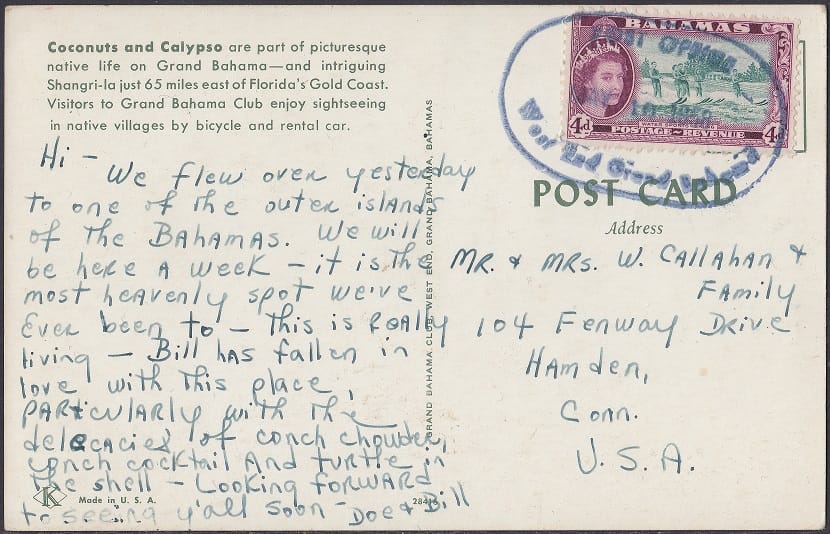 Coconuts and Calypso are part of picturesque
native life on Grand Bahama—and intriguing
Shangri-la just 65 miles east of Florida's Gold Coast.
Visitors to Grand Bahama Club enjoy sightseeing
in native villages by bicycle and rental car.
Hi -
We flew over yesterday
to one of the outer islands
of the BAHAMAS. We will
be here a week - it is the
most heavenly spot we've
Ever been to - This is REALLY
living - Bill has fallen in
love with this place,
PARTICULARLY with the
delecacies of conch chowder,
conch cocktail And turtle in
the shell - Looking FORWARD
to seeing y'all soon - Doe & Bill
K
Made in U. S. A.
GRAND BAHAMA CLUB, WEST END, GRAND BAHAMA, BAHAMAS
BAHAMAS
4d
POSTAGE~REVENUE
4d
West End Grand Bahama
POST CARD
Address
MR. & MRS. W. CALLAHAN &
Family
104 Fenway DRIVE
Hamden,
Conn.
U.S.A.